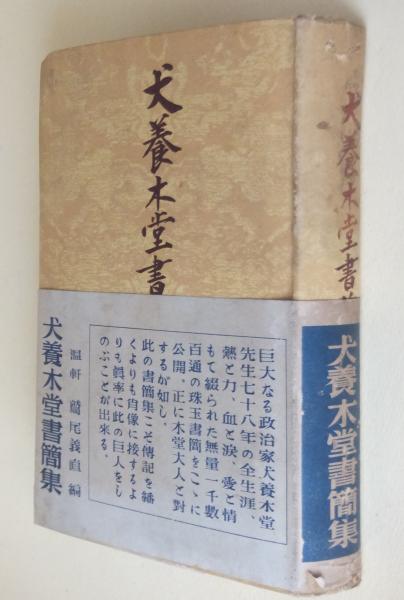 犬養木堂書
巨大なる政治家犬養木堂
先生七十八年の全生涯、
熱と力、血と涙、愛と情
もて綴られた無量一千數
百通の珠玉書簡をこゝに
公開。正に木堂大人と對
するが如し。
此の書簡集こそ傳記を繙
くよりも肖像に接するよ
りも眞率に此の巨人をし
のぶことが出來る。
溫軒 鷲尾義直編
犬養木堂書簡集
犬養木堂書
犬養木堂書簡集